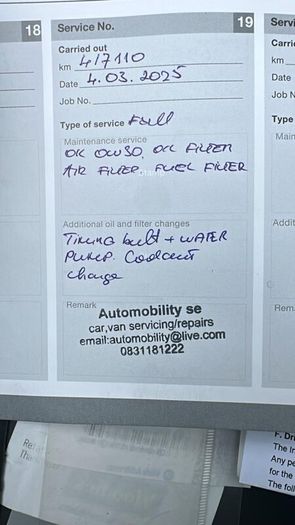 18
Service No.
19
Servi
Carried out
km 417110
Date 4.03.2025
Job No.
Type of service Full
Maintenance service
OIL 0W30, OIL FILTER
AIR FILTER, FUEL FILTER
Additional oil and filter changes
Timing belt + WATER
PUMP. Coolant
change
Remark
Automobility se
car,van servicing/repairs
email:automobility@live.com
0831181222
Carrie
km
Date
Job N
Type
Main
Addit
Rem
F. Dri
The In
Any pe
for the
The foll